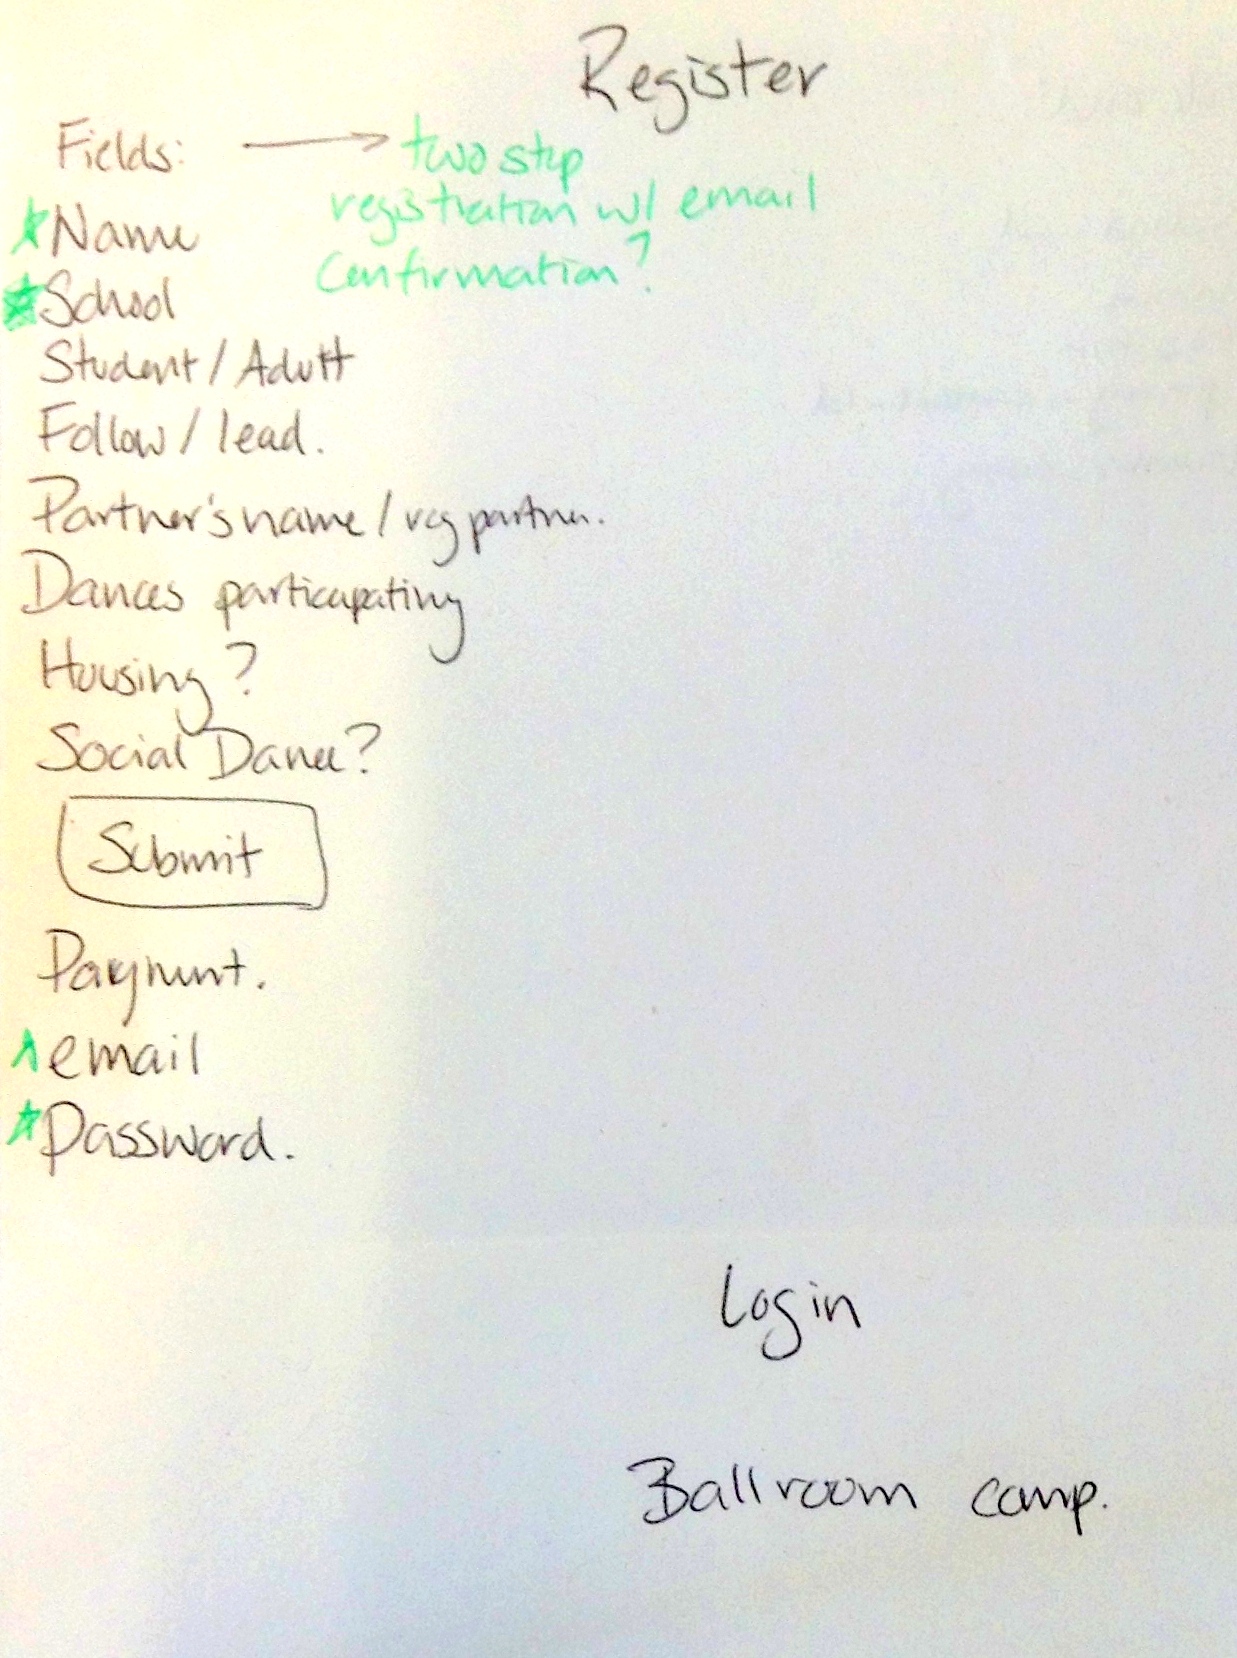 Register
Fields:
two step
registration w/ email
confirmation?
Name
School
Student / Adult
Follow / lead.
Partner's name / reg partner.
Dances particapating
Housing?
Social Dance?
Submit
Payment.
email
Password.
Login
Ballroom comp.